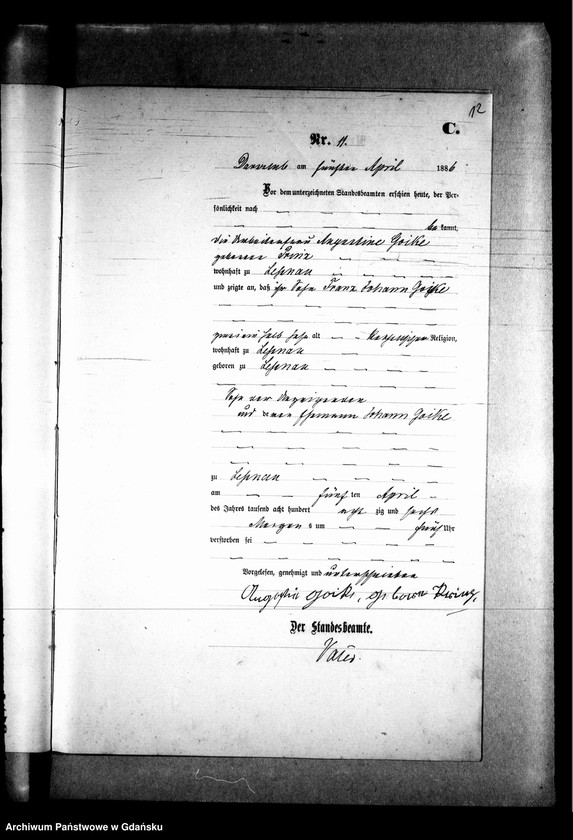 12
C.
Nr. 11.
am fünften April 1886
Vor dem unterzeichneten Standesbeamten erschien heute, der Per-
sönlichkeit nach
be kannt,
die Arbeiterfrau Augustine Goike
geborene Prinz
wohnhaft zu Lesnau
und zeigte an, daß ihr Sohn Franz Johann Goike
zweieinhalb Jahr alt katholischer Religion,
wohnhaft zu Lesnau
geboren zu Lesnau
Sohn der
und deren Ehemann Johann Goike
zu Lesnau
am fünf ten April
des Jahres tausend acht hundert acht zig und sechs
Morgen s um fünf Uhr
verstorben sei
Vorgelesen, genehmigt und unterschrieben
Goike,
Der Standesbeamte.
Archiwum Państwowe w Gdańsku